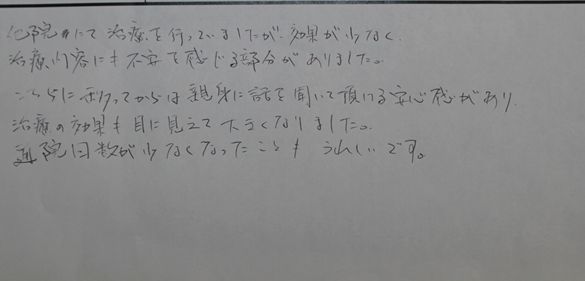 他院にて治療を行っていましたが、効果が少なく、
治療内容にも不安を感じる部分がありました。
こちらに来てからは親身に話を聞いて頂ける安心感があり、
治療の効果も目に見えて大きくなりました。
通院回数が少なくなったことも うれしいです。